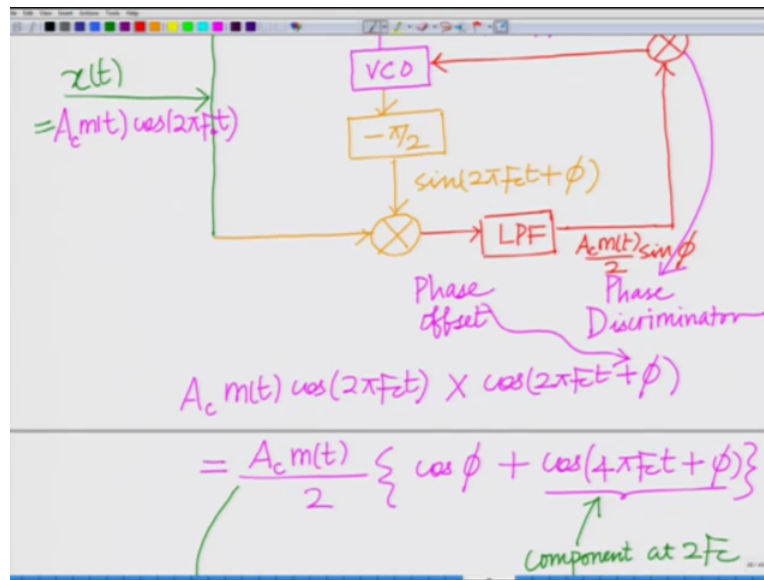 x(t)
VCO
= A_c m(t) cos(2πF_ct)
-π/2
sin(2πF_ct + φ)
LPF
A_c m(t)/2 sin φ
Phase Offset
Phase Discriminator
A_c m(t) cos(2πF_ct) × cos(2πF_ct + φ)
= A_c m(t)/2 { cos φ + cos(4πF_ct + φ) }
component at 2F_c